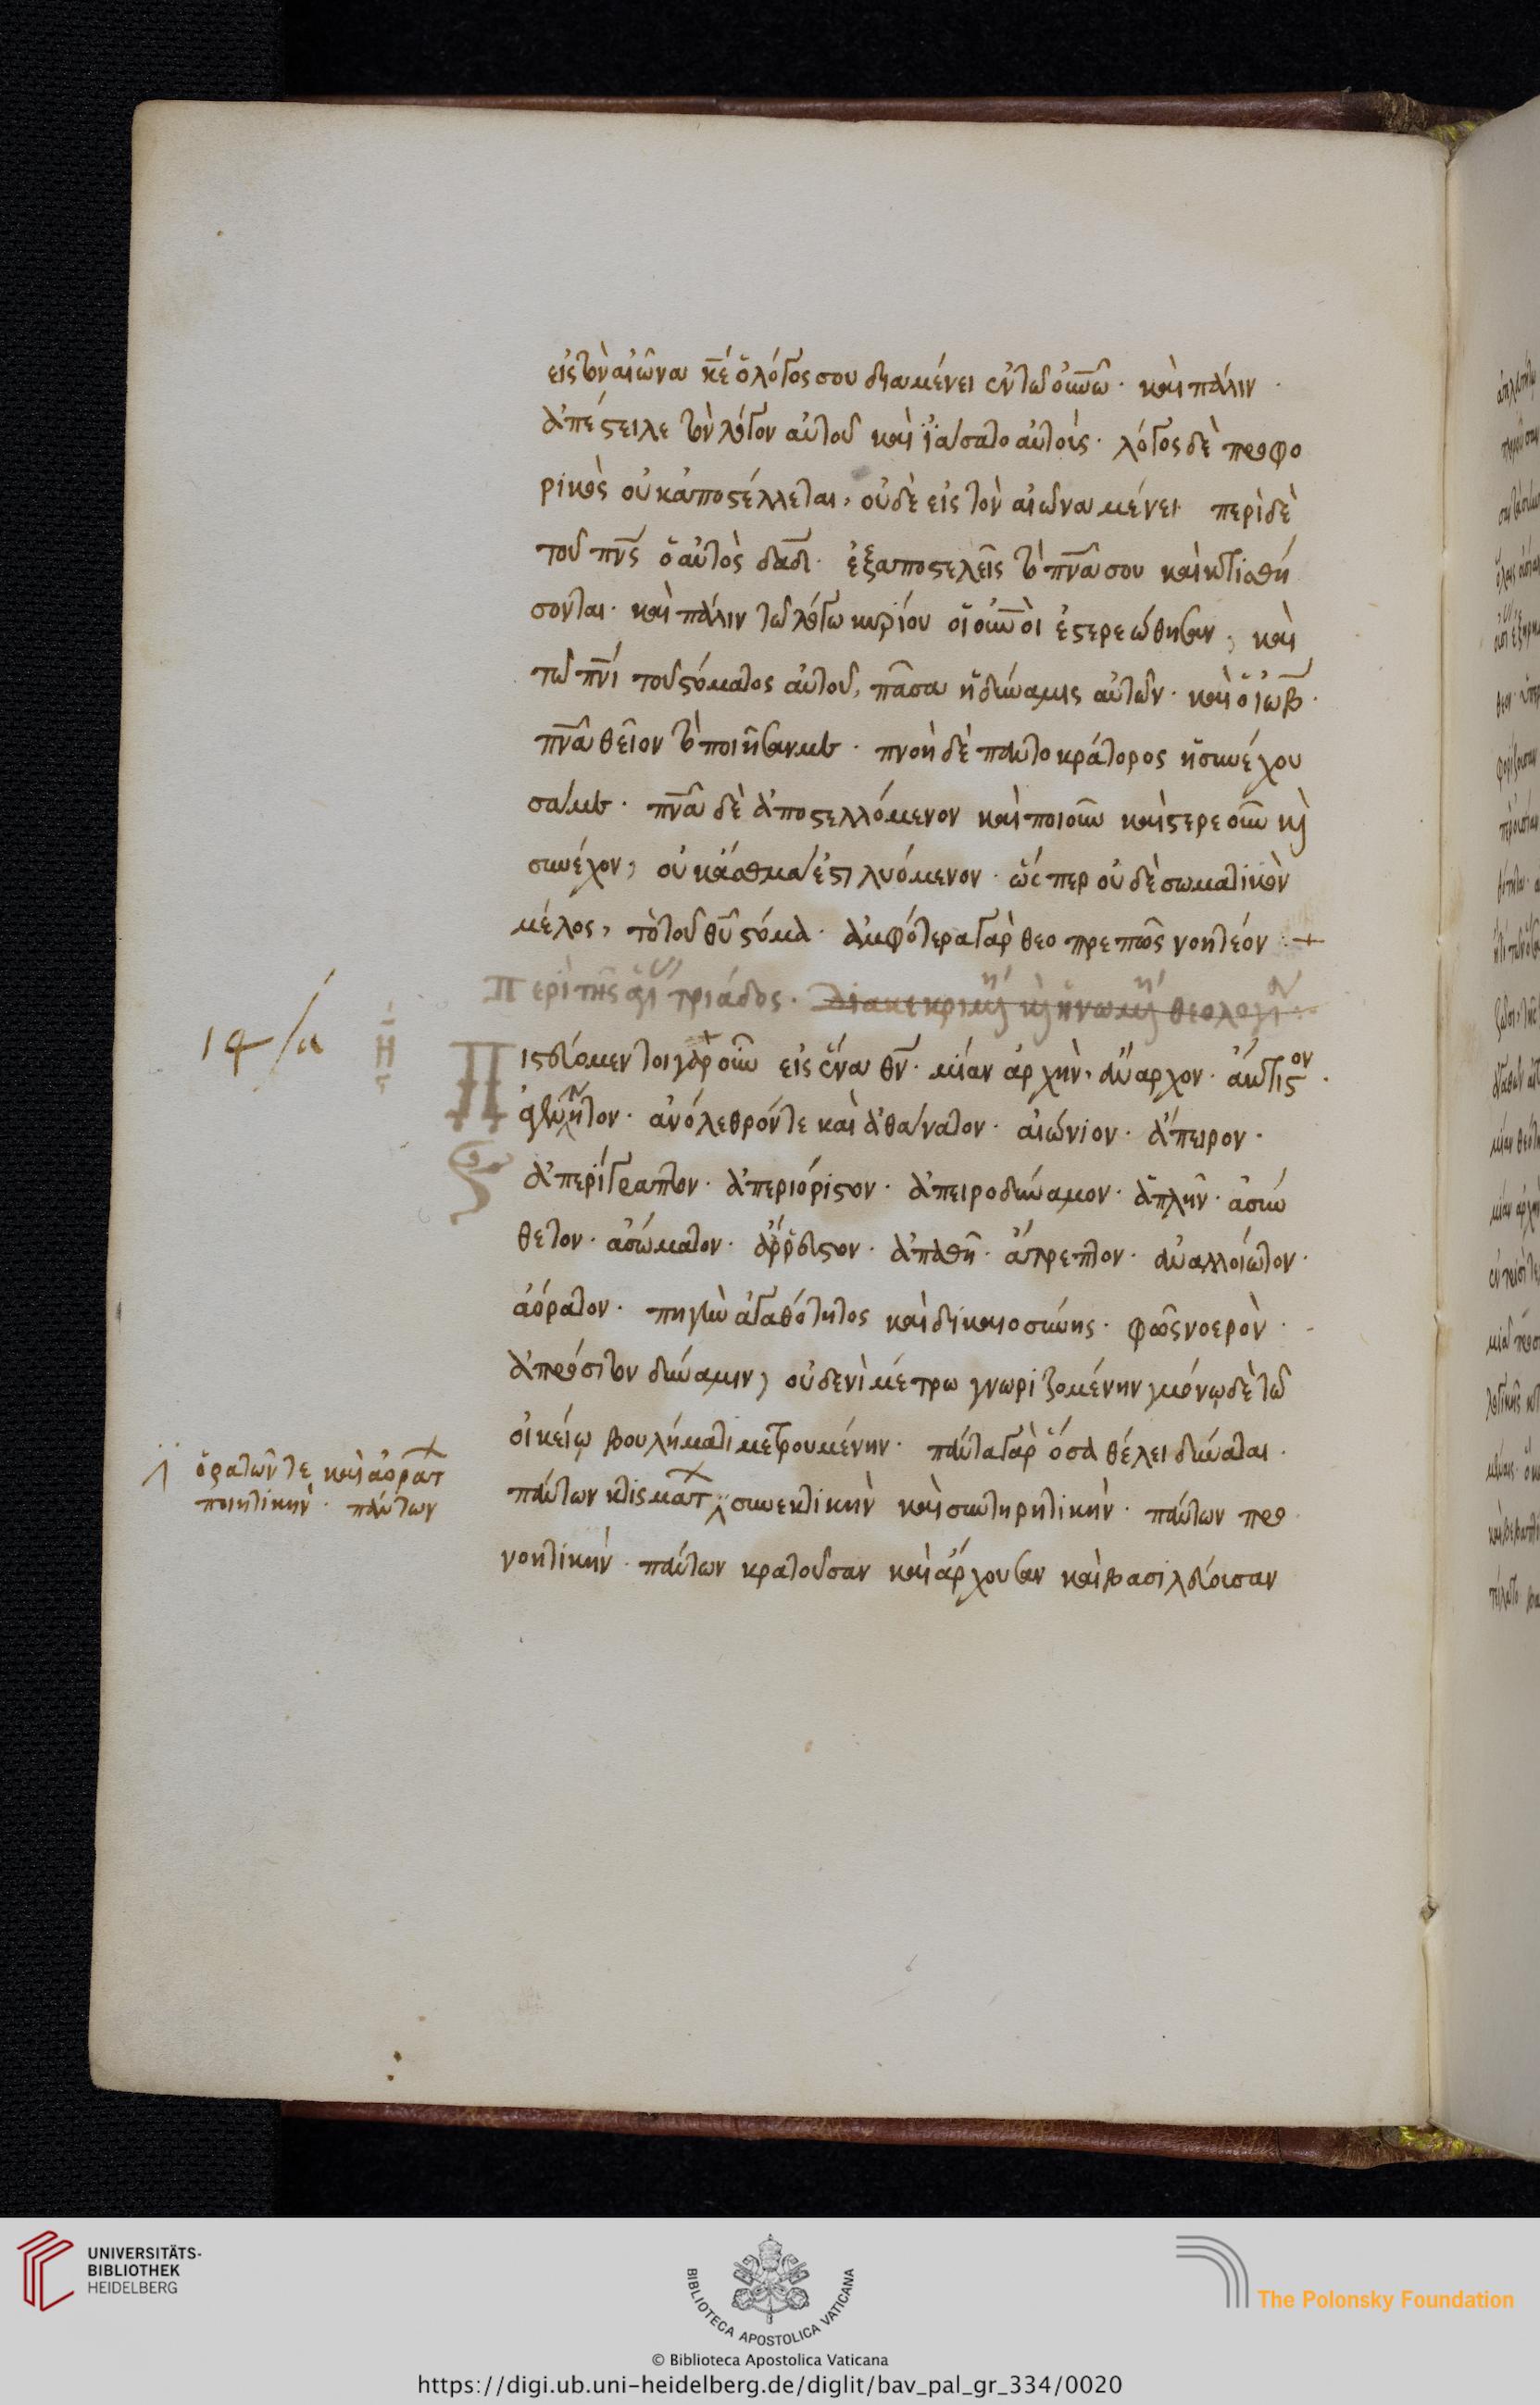 εἰς τὸν αἰῶνα κ̅ε̅ ὁ λόγος σου διαμένει ἐν τῶ ὀυ̅ν̅ω̅ · καὶ πάλιν ·
ἀπέστειλε τὸν λόγον αὐτοῦ καὶ ἰάσατο αὐτούς · λόγος δὲ προφο
ρικὸς οὐκ ἀποστέλλεται, οὐδὲ εἰς τὸν αἰῶνα μένει · περὶ δὲ
τοῦ πν̅ς̅ ὁ αὐτὸς δα̅δ̅ · ἐξαποστελεῖς τὸ πν̅α̅ σου καὶ κτισθή
σονται · καὶ πάλιν τῶ λόγω κυρίου οἱ οὐν̅οὶ ἐστερεώθησαν, καὶ
τῶ πν̅ι̅ τοῦ στόματος αὐτοῦ, πᾶσα ἡ δύναμις αὐτῶν · καὶ ὁ ἰώβ ·
πν̅α̅ θεῖον τὸ ποιῆσαν με · πνοὴ δὲ παντοκράτορος ἡ συνέχου
σά με · πν̅α̅ δὲ ἀποστελλόμενον καὶ ποιοῦν καὶ στερεοῦν κὶ
συνέχον, οὐκ ἄσθμα ἐστὶ λυόμενον · ὥσπερ οὐδὲ σωματικὸν
μέλος, τὸ τοῦ θυ̅ στόμα · ἀμφότερα γὰρ θεοπρεπῶς νοητέον :+
Περὶ τῆς ἁγί τριάδος · Διακεκριμ κὶ ἡνωμ θεολογί
Πιστεύομεν τοιγαροῦν εἰς ἕνα θν̅ · μίαν ἀρχὴν · ἄναρχον · ἄκτιστον ·
ἀγέννητον · ἀνόλεθρόν τε καὶ ἀθάνατον · αἰώνιον · ἄπειρον ·
ἀπερίγραπτον · ἀπεριόριστον · ἀπειροδύναμον · ἁπλῆν · ἀσύν
θετον · ἀσώματον · ἄρρευστον · ἀπαθῆ · ἄτρεπτον · ἀναλλοίωτον ·
ἀόρατον · πηγὴν ἀγαθότητος καὶ δικαιοσύνης · φῶς νοερὸν ·
ἀπρόσιτον δύναμιν, οὐδενὶ μέτρω γνωριζομένην μόνῳ δὲ τῶ
οἰκείῳ βουλήματι μετρουμένην · πάντα γὰρ ὅσα θέλει δύναται ·
ὁρατῶν τε καὶ ἀοράτ
ποιητικὴν · πάντων
πάντων κτισμάτ συνεκτικὴν καὶ συντηρητικὴν · πάντων προ
νοητικὴν · πάντων κρατοῦσαν καὶ ἄρχουσαν καὶ βασιλεύουσαν
UNIVERSITÄTS-
BIBLIOTHEK
HEIDELBERG
BIBLIOTECA APOSTOLICA VATICANA
The Polonsky Foundation
© Biblioteca Apostolica Vaticana
https://digi.ub.uni-heidelberg.de/diglit/bav_pal_gr_334/0020